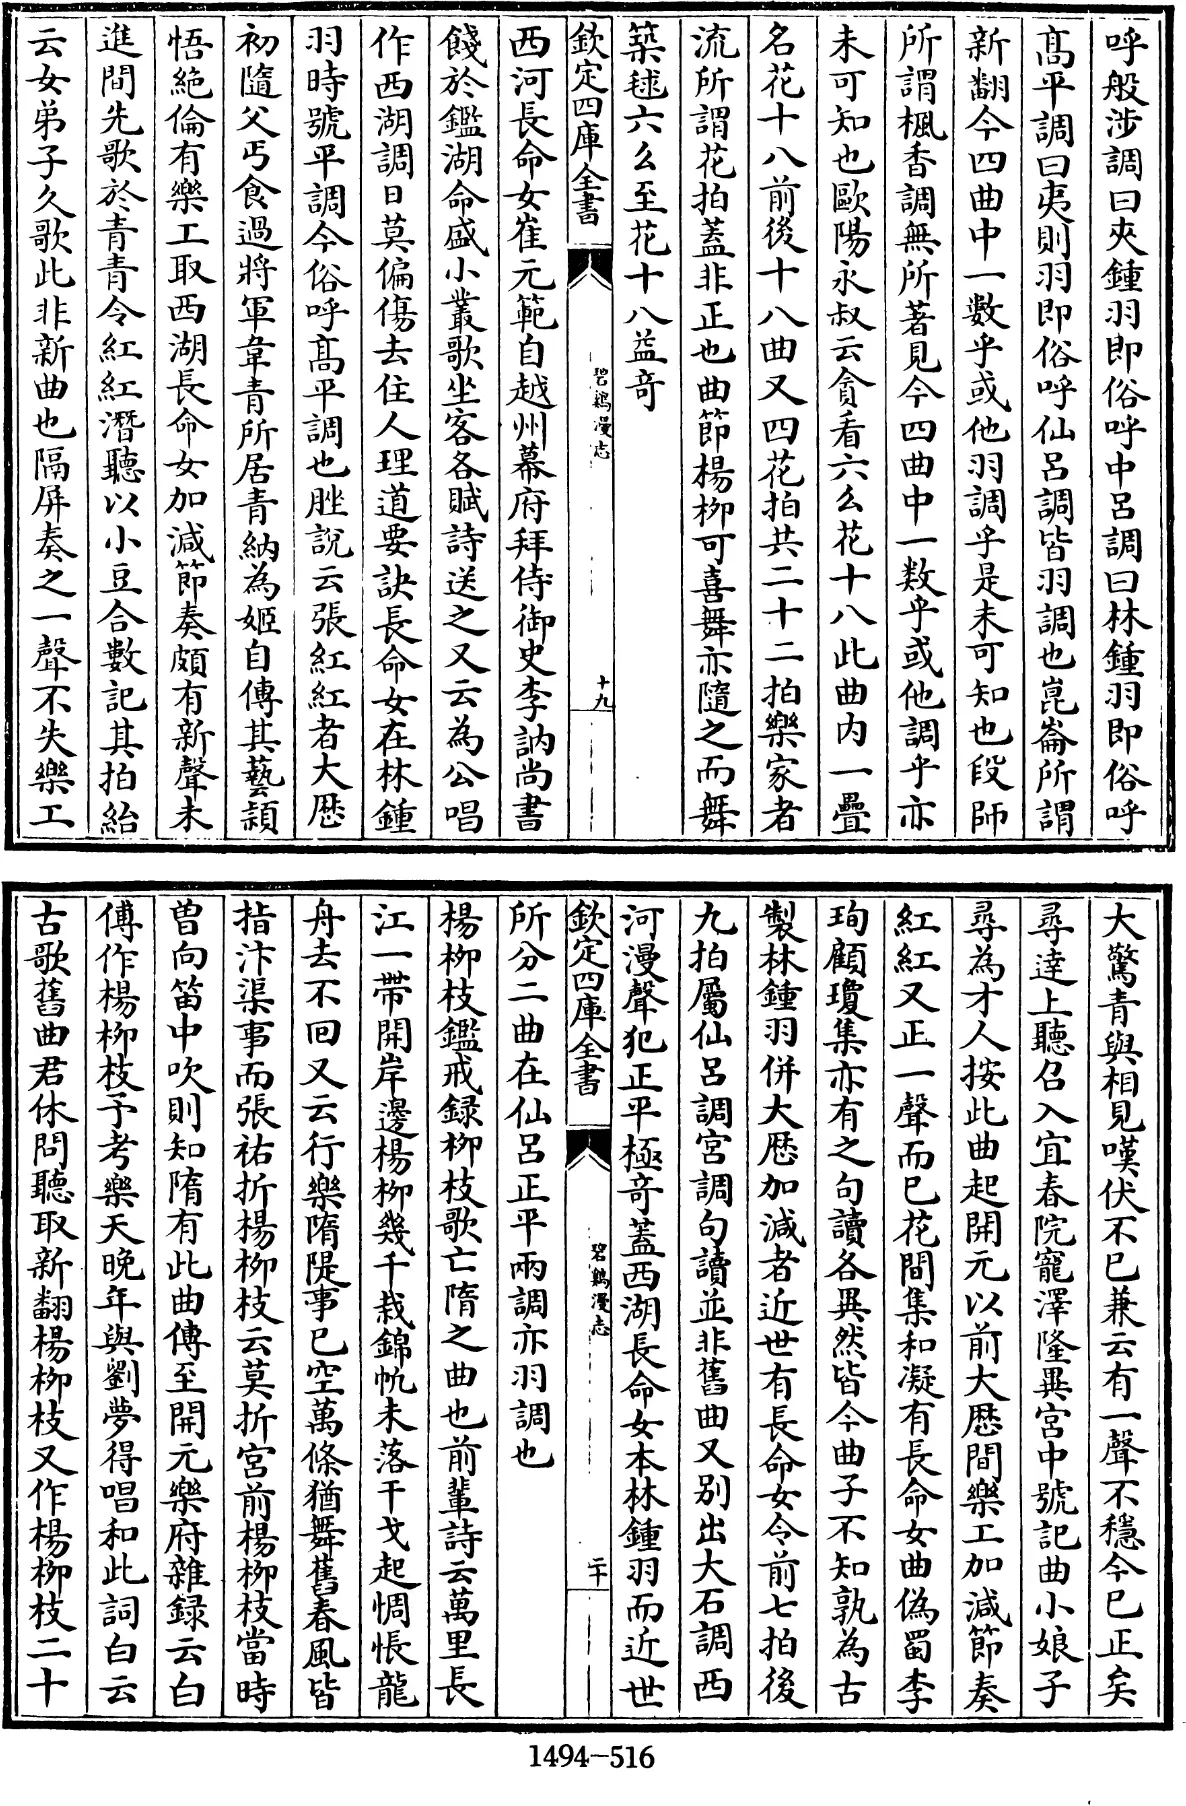 呼般涉調曰夾鍾羽即俗呼中呂調曰林鍾羽即俗呼
髙平調曰夷則羽即俗呼仙呂調皆羽調也崑崙所謂
新翻今四曲中一數乎或他羽調乎是未可知也段師
所謂楓香調無所著見今四曲中一數乎或他調乎亦
未可知也歐陽永叔云貪看六么花十八此曲内一疊
名花十八前後十八曲又四花拍共二十二拍樂家者
流所謂花拍蓋非正也曲節楊栁可喜舞亦隨之而舞
築毬六么至花十八益竒
欽定四庫全書
碧鷄漫志
十九
西河長命女崔元範自越州幕府拜侍御史李訥尚書
餞於鑑湖命盛小叢歌坐客各賦詩送之又云為公唱
作西湖調日莫偏傷去住人理道要訣長命女在林鍾
羽時號平調今俗呼髙平調也脞説云張紅紅者大歴
初隨父丐食過將軍韋青所居青納為姬自傳其藝頴
悟絶倫有樂工取西湖長命女加減節奏頗有新聲未
進間先歌於青青令紅紅潛聽以小豆合數記其拍紿
云女弟子久歌此非新曲也隔屏奏之一聲不失樂工
大驚青與相見嘆伏不已兼云有一聲不穩今已正矣
尋達上聽召入宜春院寵澤隆異宮中號記曲小娘子
尋為才人按此曲起開元以前大厯間樂工加減節奏
紅紅又正一聲而已花間集和凝有長命女曲偽蜀李
珣顧瓊集亦有之句讀各異然皆今曲子不知孰為古
製林鍾羽併大厯加減者近世有長命女令前七拍後
九拍屬仙呂調宮調句讀並非舊曲又别出大石調西
河漫聲犯正平極竒蓋西湖長命女本林鍾羽而近世
欽定四庫全書
碧鷄漫志
二十
所分二曲在仙呂正平兩調亦羽調也
楊栁枝鑑戒録栁枝歌亡隋之曲也前輩詩云萬里長
江一帶開岸邊楊栁幾千栽錦帆未落干戈起惆悵龍
舟去不回又云行樂隋隄事已空萬條猶舞舊春風皆
指汴渠事而張祐折楊栁枝云莫折宮前楊栁枝當時
曽向笛中吹則知隋有此曲傳至開元樂府雜録云白
傅作楊栁枝予考樂天晚年與劉夢得唱和此詞白云
古歌舊曲君休問聽取新翻楊栁枝又作楊栁枝二十
1494-516